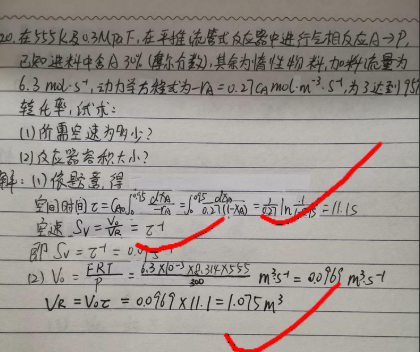 20. 在555K及0.3MPa下,在平推流管式反应器中进行气相反应A→P,
已知进料中含A 30%(摩尔分数),其余为惰性物料,加料流量为
6.3 mol·s⁻¹,动力学方程式为-rA=0.27cA mol·m⁻³·s⁻¹,为了达到95%
转化率,试求:
(1)所需空速为多少?
(2)反应器容积大小?
解:(1)依题意,得
空间时间τ=CA0∫₀^0.95 dxA/-rA=∫₀^0.95 dxA/0.27(1-xA)=1/0.27 ln 1/1-0.95=11.1s
空速 Sv=V0/VR=τ⁻¹
即 Sv=τ⁻¹=0.09s⁻¹
(2) V0=FRT/P=6.3×10⁻³×8.314×555/300 m³s⁻¹=0.0969 m³·s⁻¹
VR=V0τ=0.0969×11.1=1.075m³